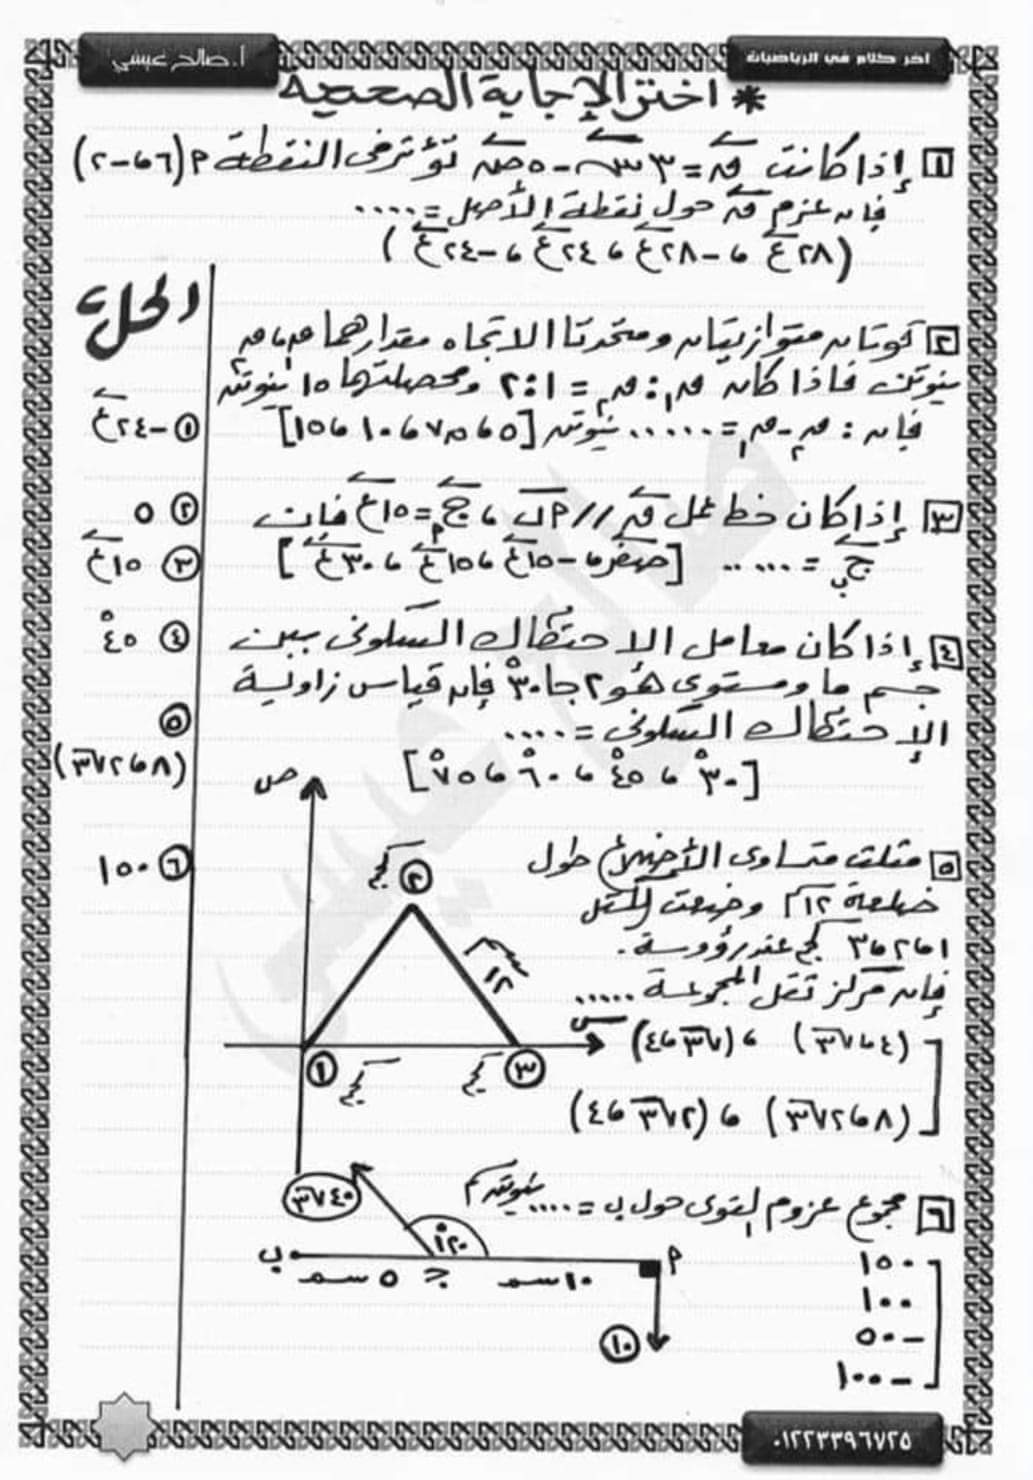 أ. صالح عيسي
اخر كلام في الرياضيات
* اختر الإجابة الصحيحة
١ إذا كانت ق = ٣ س - ٥ ص تؤثر في النقطة م (٦، -٢)
فإن عزم ق حول نقطة الأصل = ....
(٢٨ ع ، -٢٨ ع ، ٢٤ ع ، -٢٤ ع)
٢ قوتان متوازيتان ومتحدتا الاتجاه مقدارهما ق١، ق٢
نيوتن فإذا كان ق١ : ق٢ = ١ : ٢ ومحصلتها ١٥ نيوتن
فإن : ق٢ - ق١ = ...... نيوتن [٥ ، ٧,٥ ، ١٠ ، ١٥]
٣ إذا كان خط عمل ق // أب ، ج أ = ١٥ ع فإن
ج ب = ...... [صفر ، -١٥ ع ، ١٥ ع ، ٣٠ ع]
٤ إذا كان معامل الاحتكاك السكوني بين
جسم ما ومستوي هو ٢ جا ٣٠° فإن قياس زاوية
الاحتكاك السكوني = ....
[٣٠° ، ٤٥° ، ٦٠° ، ٧٥°]
٥ مثلث متساوي الأضلاع طول
ضلعه ١٢ م وضعت الكتل
١ ، ٢ ، ٣ كجم عند رؤوسه.
فإن مركز ثقل المجموعة .....
(٤ ، √٣) ، (√٣ ، ٤)
(٨ ، ٢√٣) ، (٢√٣ ، ٤)
ص
٢ كجم
١٢
س
١ كجم
٣ كجم
٦ مجموع عزوم القوى حول ب = .... نيوتن.م
١٥٠
١٠٠
-٥٠
-١٠٠
٤٠√٣
١٢٠°
ب
٥ سم
ج
١٠ سم
م
١٠
الحل
١ -٢٤ ع
٢ ٥
٣ ١٥ ع
٤ ٤٥°
٥
(٨ ، ٢√٣)
٦ ١٥٠
٠١٢٢٣٣٩٦٧٢٥